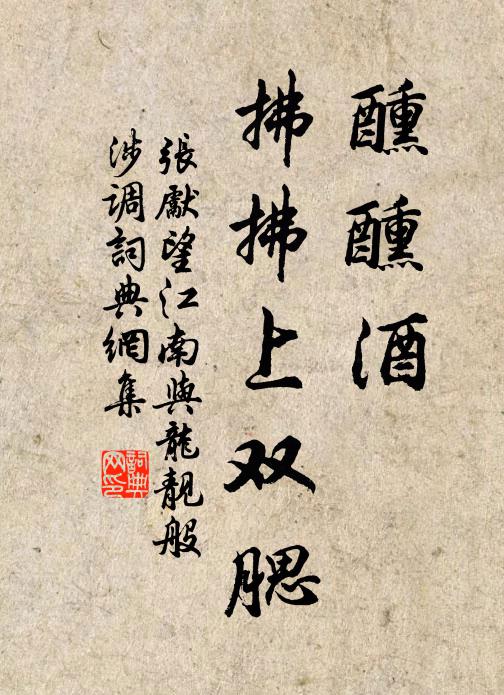 醺醺酒
拂拂上双腮
張獻望江南與龍靚般
涉调詞典網集
詞典網印